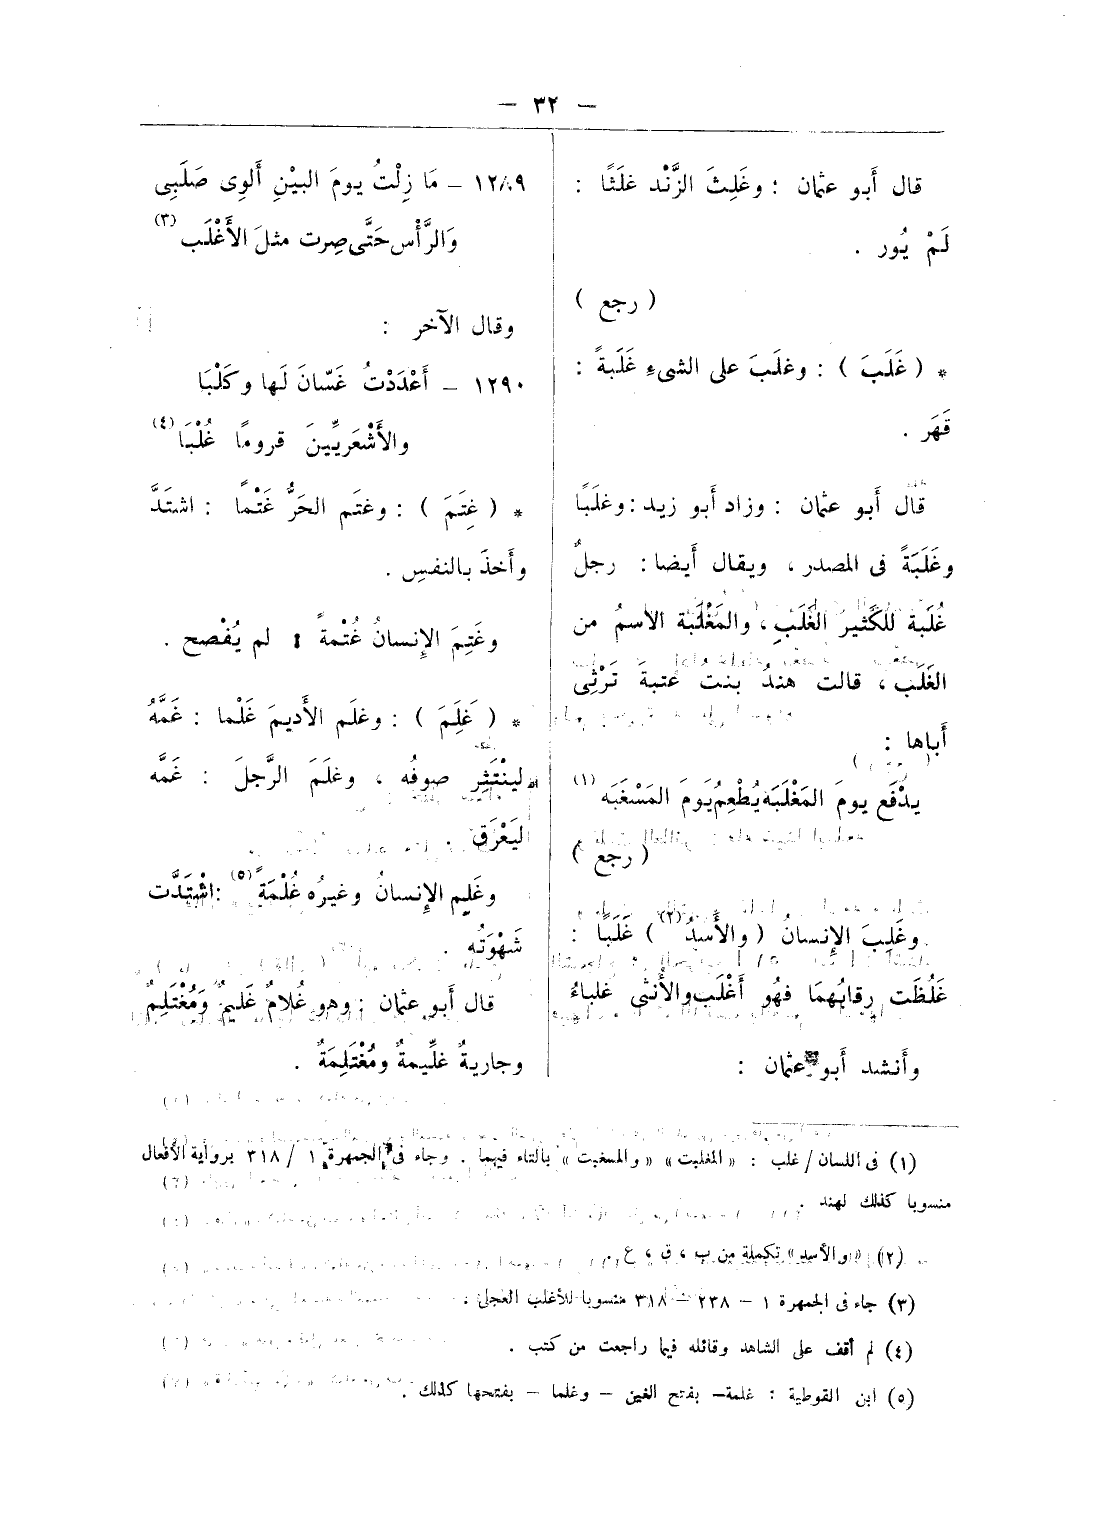 — ٣٢ —
قال أَبو عثمان : وغَلِثَ الزَّنْد غلَثًا :
لَمْ يُور .
( رجع )
* ( غَلَبَ ) : وغلَبَ على الشىءِ غَلَبَةً :
قَهَر .
قال أَبو عثمان : وزاد أَبو زيد : وغلَبًا
وغَلَبَةً فى المصدر ، ويقال أَيضا : رجلٌ
غُلَبة للكَثيرُ الغَلَبِ ، والمَغْلَبة الاسمُ من
الغَلَب ، قالت هندُ بنت عتبةَ تَرْثِى
أَباها :
يدْفَع يومَ المَغْلَبَه يُطْعِمُ يَومَ المَسْغَبَه (١)
( رجع )
وغَلِبَ الإِنسانُ ( والأَسدُ (٢) ) غَلَبًا :
غَلُظَت رِقابُهمَا فهُو أَغْلَب والأُنثى غلباءُ
وأَنشد أَبو عثمان :
١٢٨٩ – مَا زِلْتُ يومَ البيْنِ أَلوِى صَلَبِى
وَالرَّأْس حَتَّى صِرت مثلَ الأَغْلَب (٣)
وقال الآخر :
١٢٩٠ – أَعْدَدْتُ غَسّانَ لَها وكَلْبَا
والأَشْعَريِّينَ قرومًا غُلْبَا (٤)
* ( غِتَمَ ) : وغتَم الحَرُّ غَتْمًا : اشتَدَّ
وأَخذَ بالنفسِ .
وغَتِمَ الإِنسانُ غُتْمةً : لم يُفْصح .
* ( غَلِمَ ) : وغلَم الأَديمَ غَلْما : غَمَّهُ
لينْتَثِر صوفُه ، وغلَمَ الرَّجلَ : غَمَّه
ليَعْرَق .
وغَلِم الإِنسانُ وغيرُه غُلْمَةً (٥) : اشْتَدَّت
شَهْوَتُه .
قال أَبو عثمان : وهو غُلامٌ غَليمٌ وَمُغْتَلِمٌ
وجاريةٌ غلِّيمةٌ ومُغْتَلِمَةٌ .
(١) فى اللسان / غلب : « المغلبت » « والمسغبت » بالتاء فيهما . وجاء فى الجمهرة ١ / ٣١٨ برواية الأفعال
منسوبا كذلك لهند .
(٢) « والأسد » تكملة من ب ، ق ، ع .
(٣) جاء فى الجمهرة ١ – ٢٣٨ – ٣١٨ منسوبا للأغلب العجلى .
(٤) لم أقف على الشاهد وقائله فيما راجعت من كتب .
(٥) ابن القوطية : غلمة – بفتح الغين – وغلما – بفتحها كذلك .